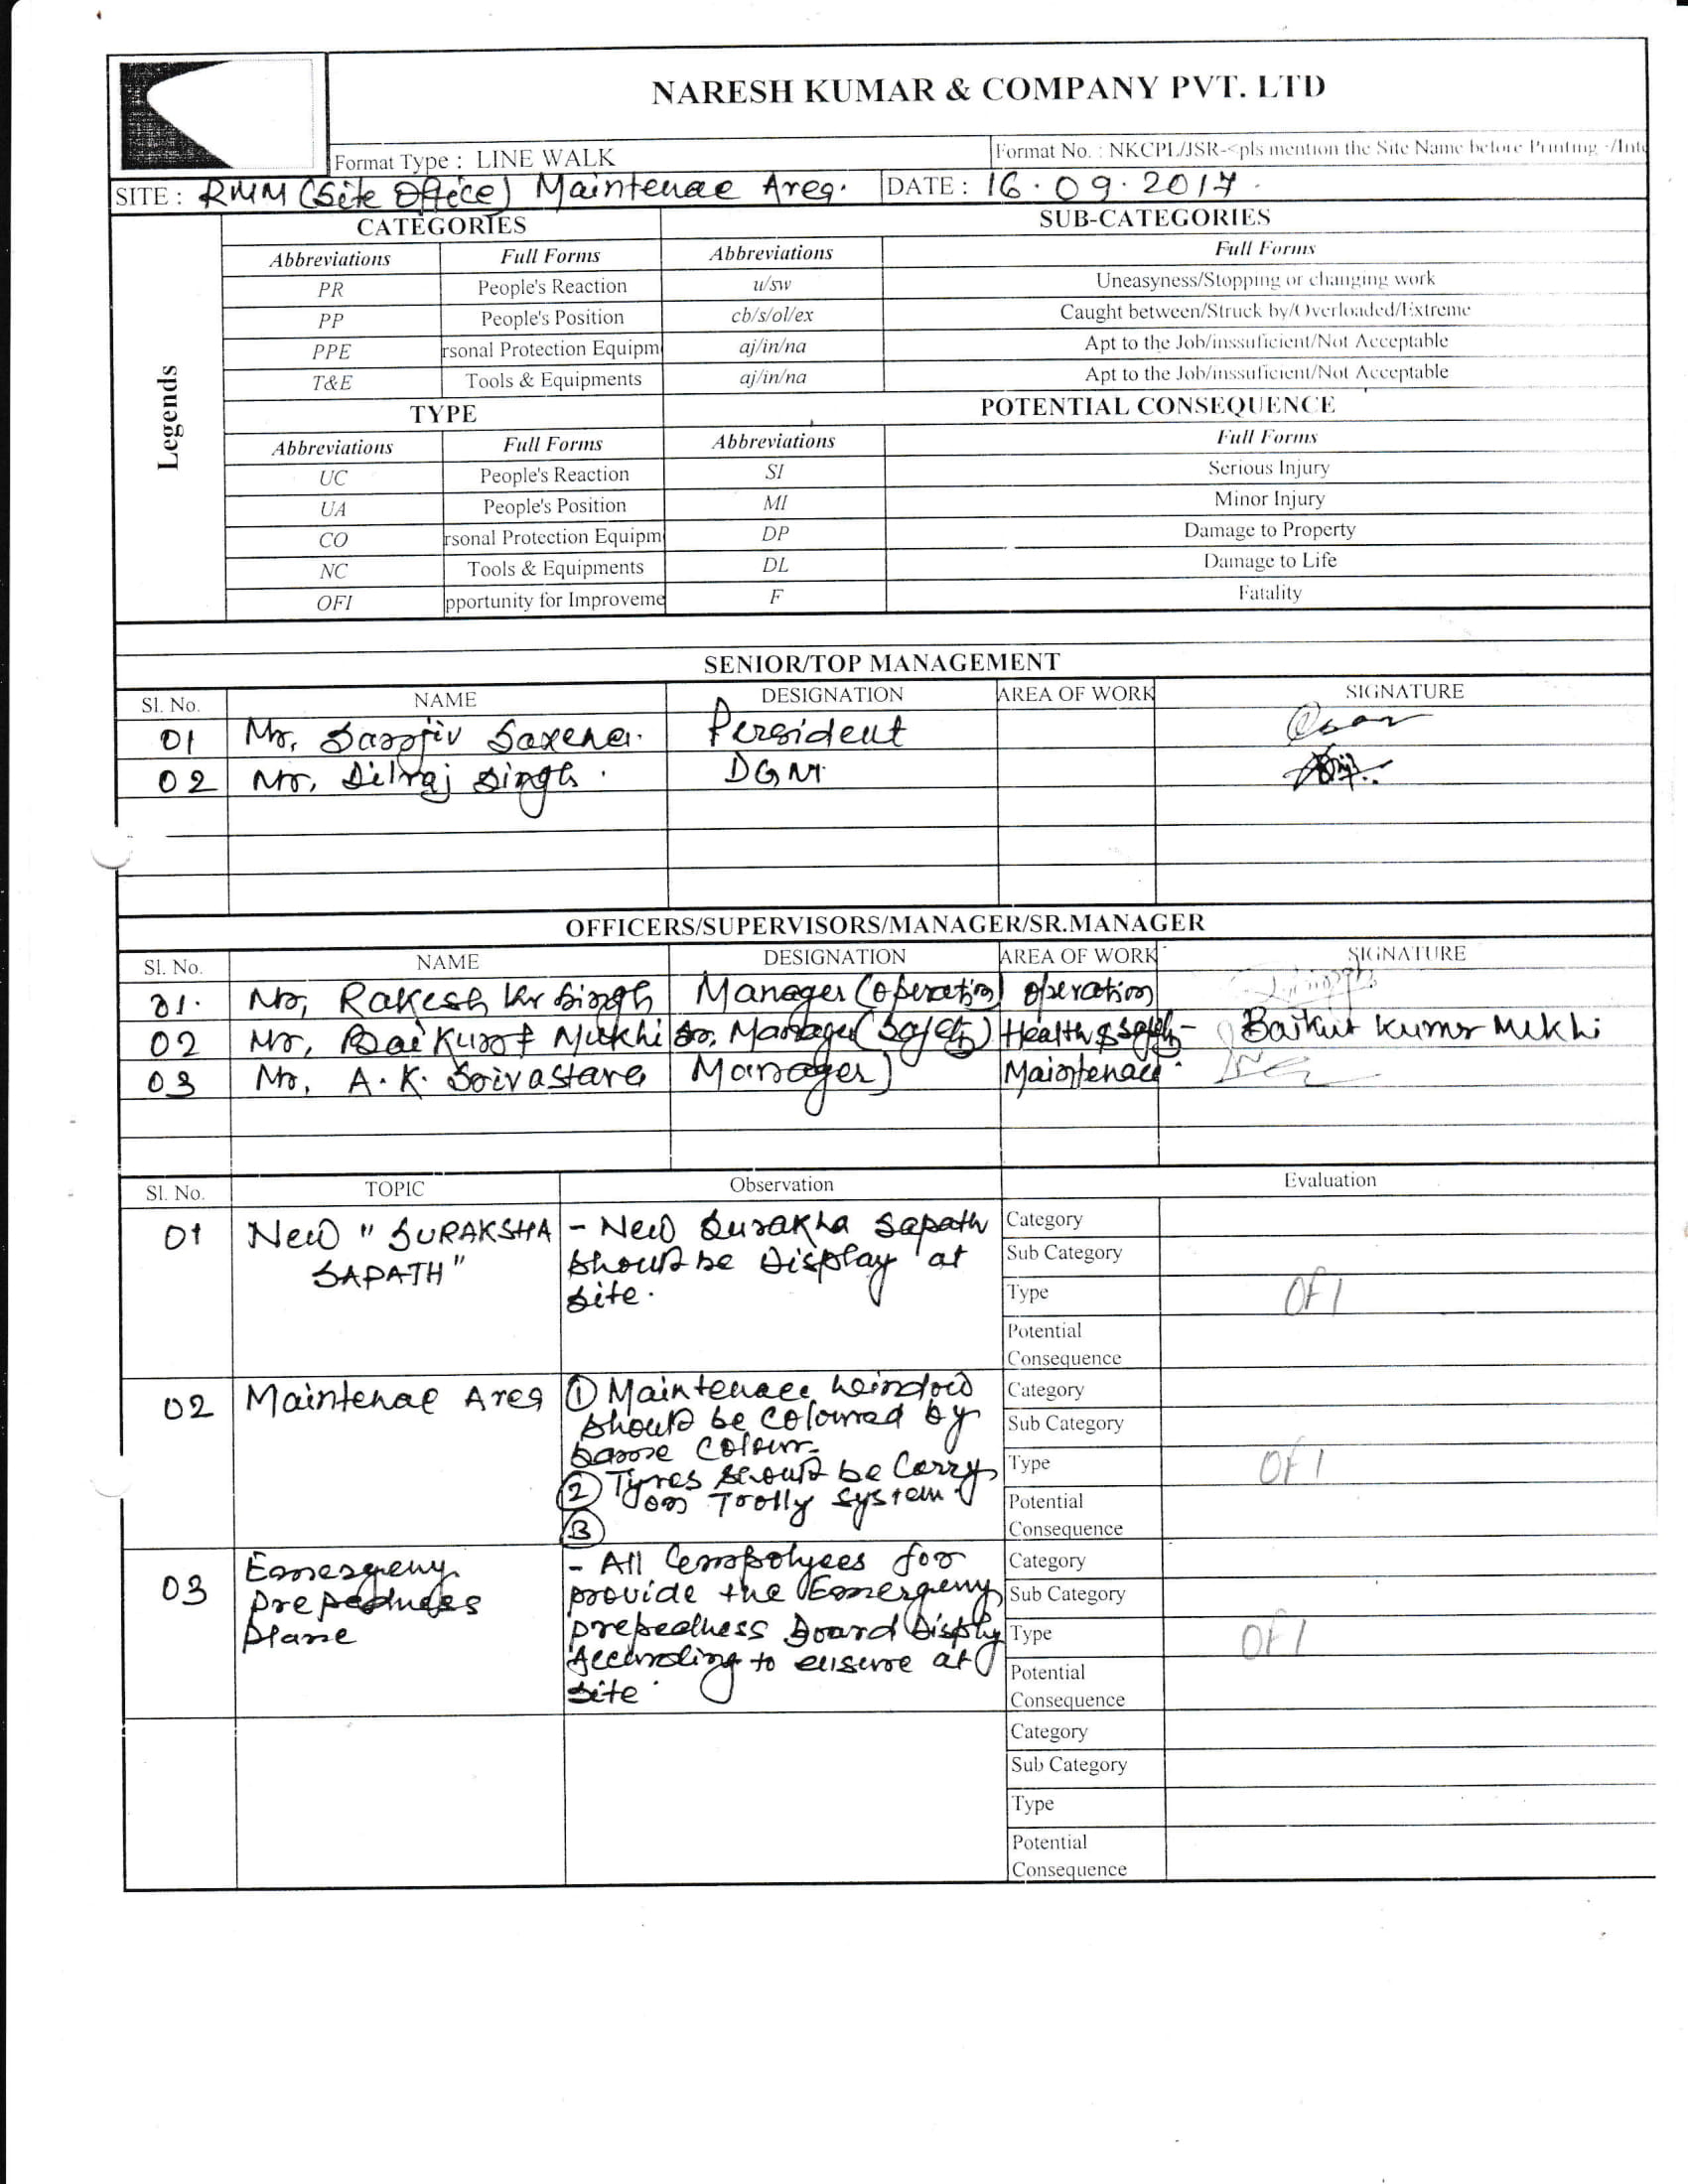 NARESH KUMAR & COMPANY PVT. LTD
Format Type : LINE WALK
Format No. : NKCPL/JSR-<pls mention the Site Name before Printing
SITE : RMM (Site Office) Maintenae Area. DATE : 16.09.2017.
Legends
CATEGORIES SUB-CATEGORIES
Abbreviations Full Forms Abbreviations Full Forms
PR People's Reaction u/sw Uneasyness/Stopping or changing work
PP People's Position cb/s/ol/ex Caught between/Struck by/Overloaded/Extreme
PPE rsonal Protection Equipm aj/in/na Apt to the Job/inssuficient/Not Acceptable
T&E Tools & Equipments aj/in/na Apt to the Job/inssuficient/Not Acceptable
TYPE POTENTIAL CONSEQUENCE
Abbreviations Full Forms Abbreviations Full Forms
UC People's Reaction SI Serious Injury
UA People's Position MI Minor Injury
CO rsonal Protection Equipm DP Damage to Property
NC Tools & Equipments DL Damage to Life
OFI pportunity for Improveme F Fatality
SENIOR/TOP MANAGEMENT
Sl. No. NAME DESIGNATION AREA OF WORK SIGNATURE
01 Mr. Sanjiv Saxena. Persident
02 Mr. Dilraj Singh. DGM.
OFFICERS/SUPERVISORS/MANAGER/SR.MANAGER
Sl. No. NAME DESIGNATION AREA OF WORK SIGNATURE
01. Mr, Rakesh Kr Singh Manager (operation) operation
02 Mr, Baikunt Mukhi Sr. Manager (Safety) Health & Safety- Baikut Kumar Mukhi
03 Mr. A.K. Srivastava Manager) Maintenace.
Sl. No. TOPIC Observation Evaluation
01 New "SURAKSHA SAPATH"
- New Surakha Sapath
should be Display at
site.
Category
Sub Category
Type OFI
Potential
Consequence
02 Maintenae Area
① Maintenace window
should be coloured by
same colour.
② Tyres should be Carry
on Trolly system.
③
Category
Sub Category
Type OFI
Potential
Consequence
03 Emergeny
plane
- All Cempolyees for
provide the Emergeny
prepedness Board Disply
According to ensure at
site.
Category
Sub Category
Type OFI
Potential
Consequence
Category
Sub Category
Type
Potential
Consequence